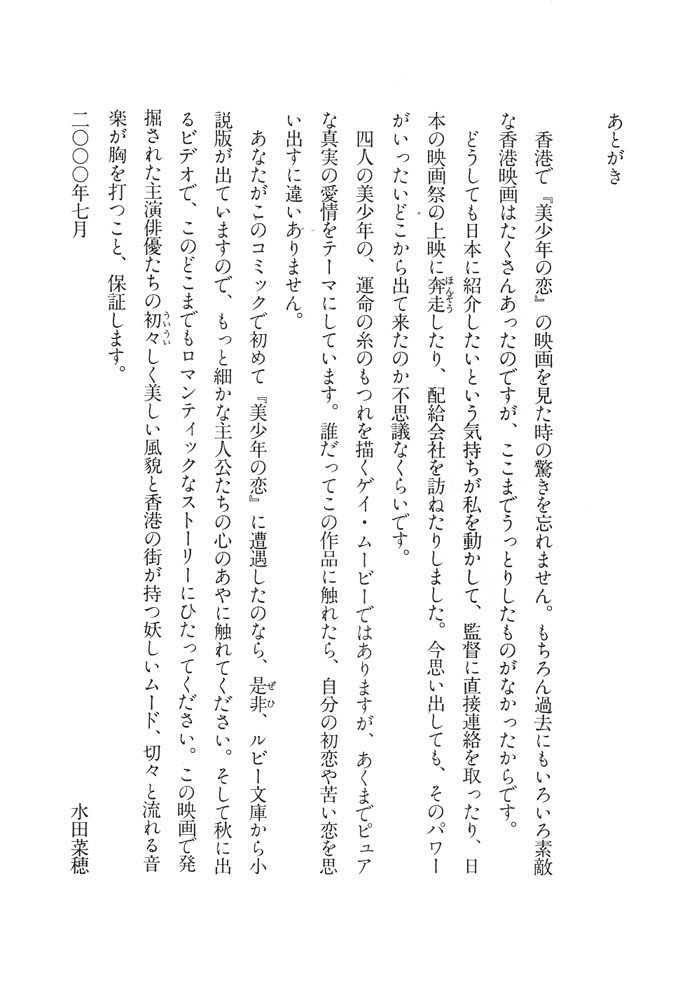 あとがき
香港で『美少年の恋』の映画を見た時の驚きを忘れません。もちろん過去にもいろいろ素敵
な香港映画はたくさんあったのですが、ここまでうっとりしたものがなかったからです。
どうしても日本に紹介したいという気持ちが私を動かして、監督に直接連絡を取ったり、日
本の映画祭の上映に奔走したり、配給会社を訪ねたりしました。今思い出しても、そのパワー
がいったいどこから出て来たのか不思議なくらいです。
四人の美少年の、運命の糸のもつれを描くゲイ・ムービーではありますが、あくまでピュア
な真実の愛情をテーマにしています。誰だってこの作品に触れたら、自分の初恋や苦い恋を思
い出すに違いありません。
あなたがこのコミックで初めて『美少年の恋』に遭遇したのなら、是非、ルビー文庫から小
説版が出ていますので、もっと細かな主人公たちの心のあやに触れてください。そして秋に出
るビデオで、このどこまでもロマンティックなストーリーにひたってください。この映画で発
掘された主演俳優たちの初々しく美しい風貌と香港の街が持つ妖しいムード、切々と流れる音
楽が胸を打つこと、保証します。
二〇〇〇年七月
水田菜穂